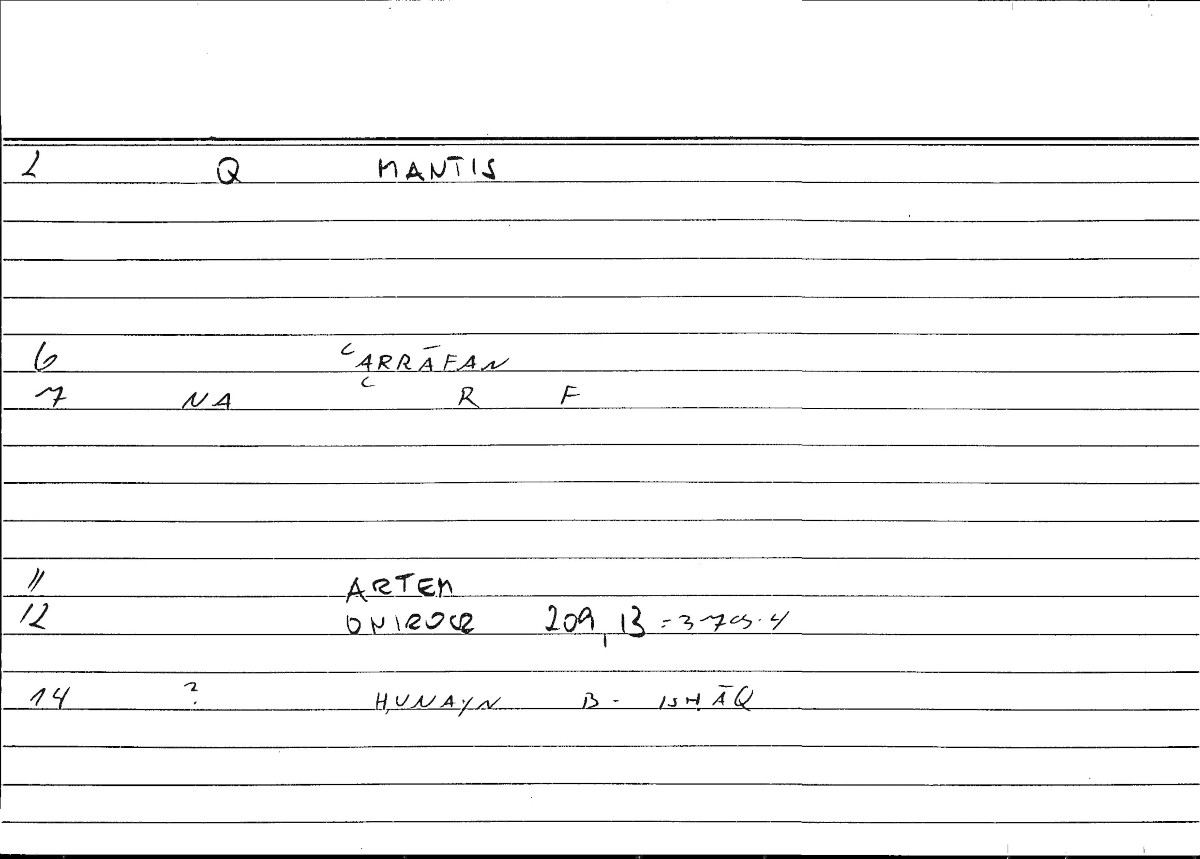 2 Q MANTIS
6 ʿARRĀFAN
7 NA ʿ R F
11 ARTEM
12 ONIROCR 209,13 = 375.4
14 ? ḤUNAYN B. ISḤĀQ